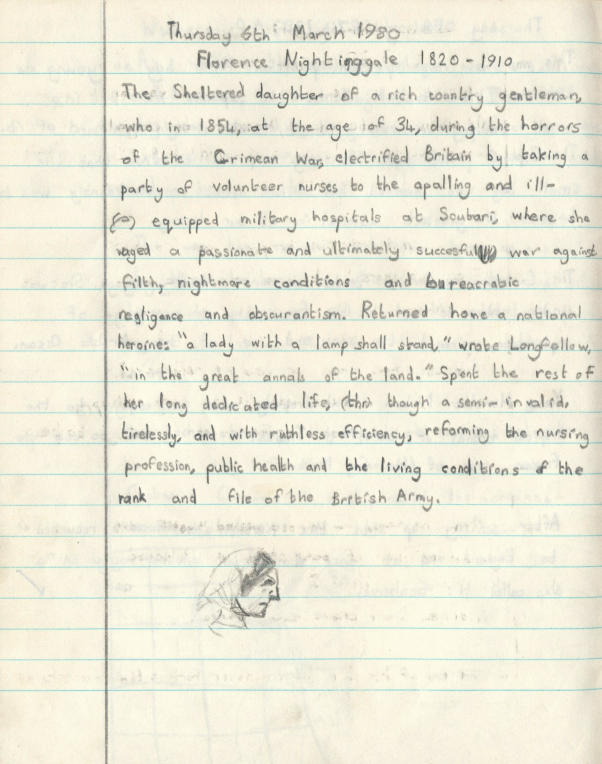 Thursday 6th March 1980
Florence Nightinggale 1820 - 1910
The Sheltered daughter of a rich country gentleman,
who in 1854, at the age of 34, during the horrors
of the Crimean War, electrified Britain by taking a
party of volunteer nurses to the apalling and ill-
equipped military hospitals at Scutari, where she
waged a passionate and ultimately succesful war against
filth, nightmare conditions and bureacratic
negligence and obscurantism. Returned home a national
heroine: "a lady with a lamp shall stand," wrote Longfellow,
"in the great annals of the land." Spent the rest of
her long dedicated life, (thr) though a semi-invalid,
tirelessly, and with ruthless efficiency, reforming the nursing
profession, public health and the living conditions of the
rank and file of the British Army.